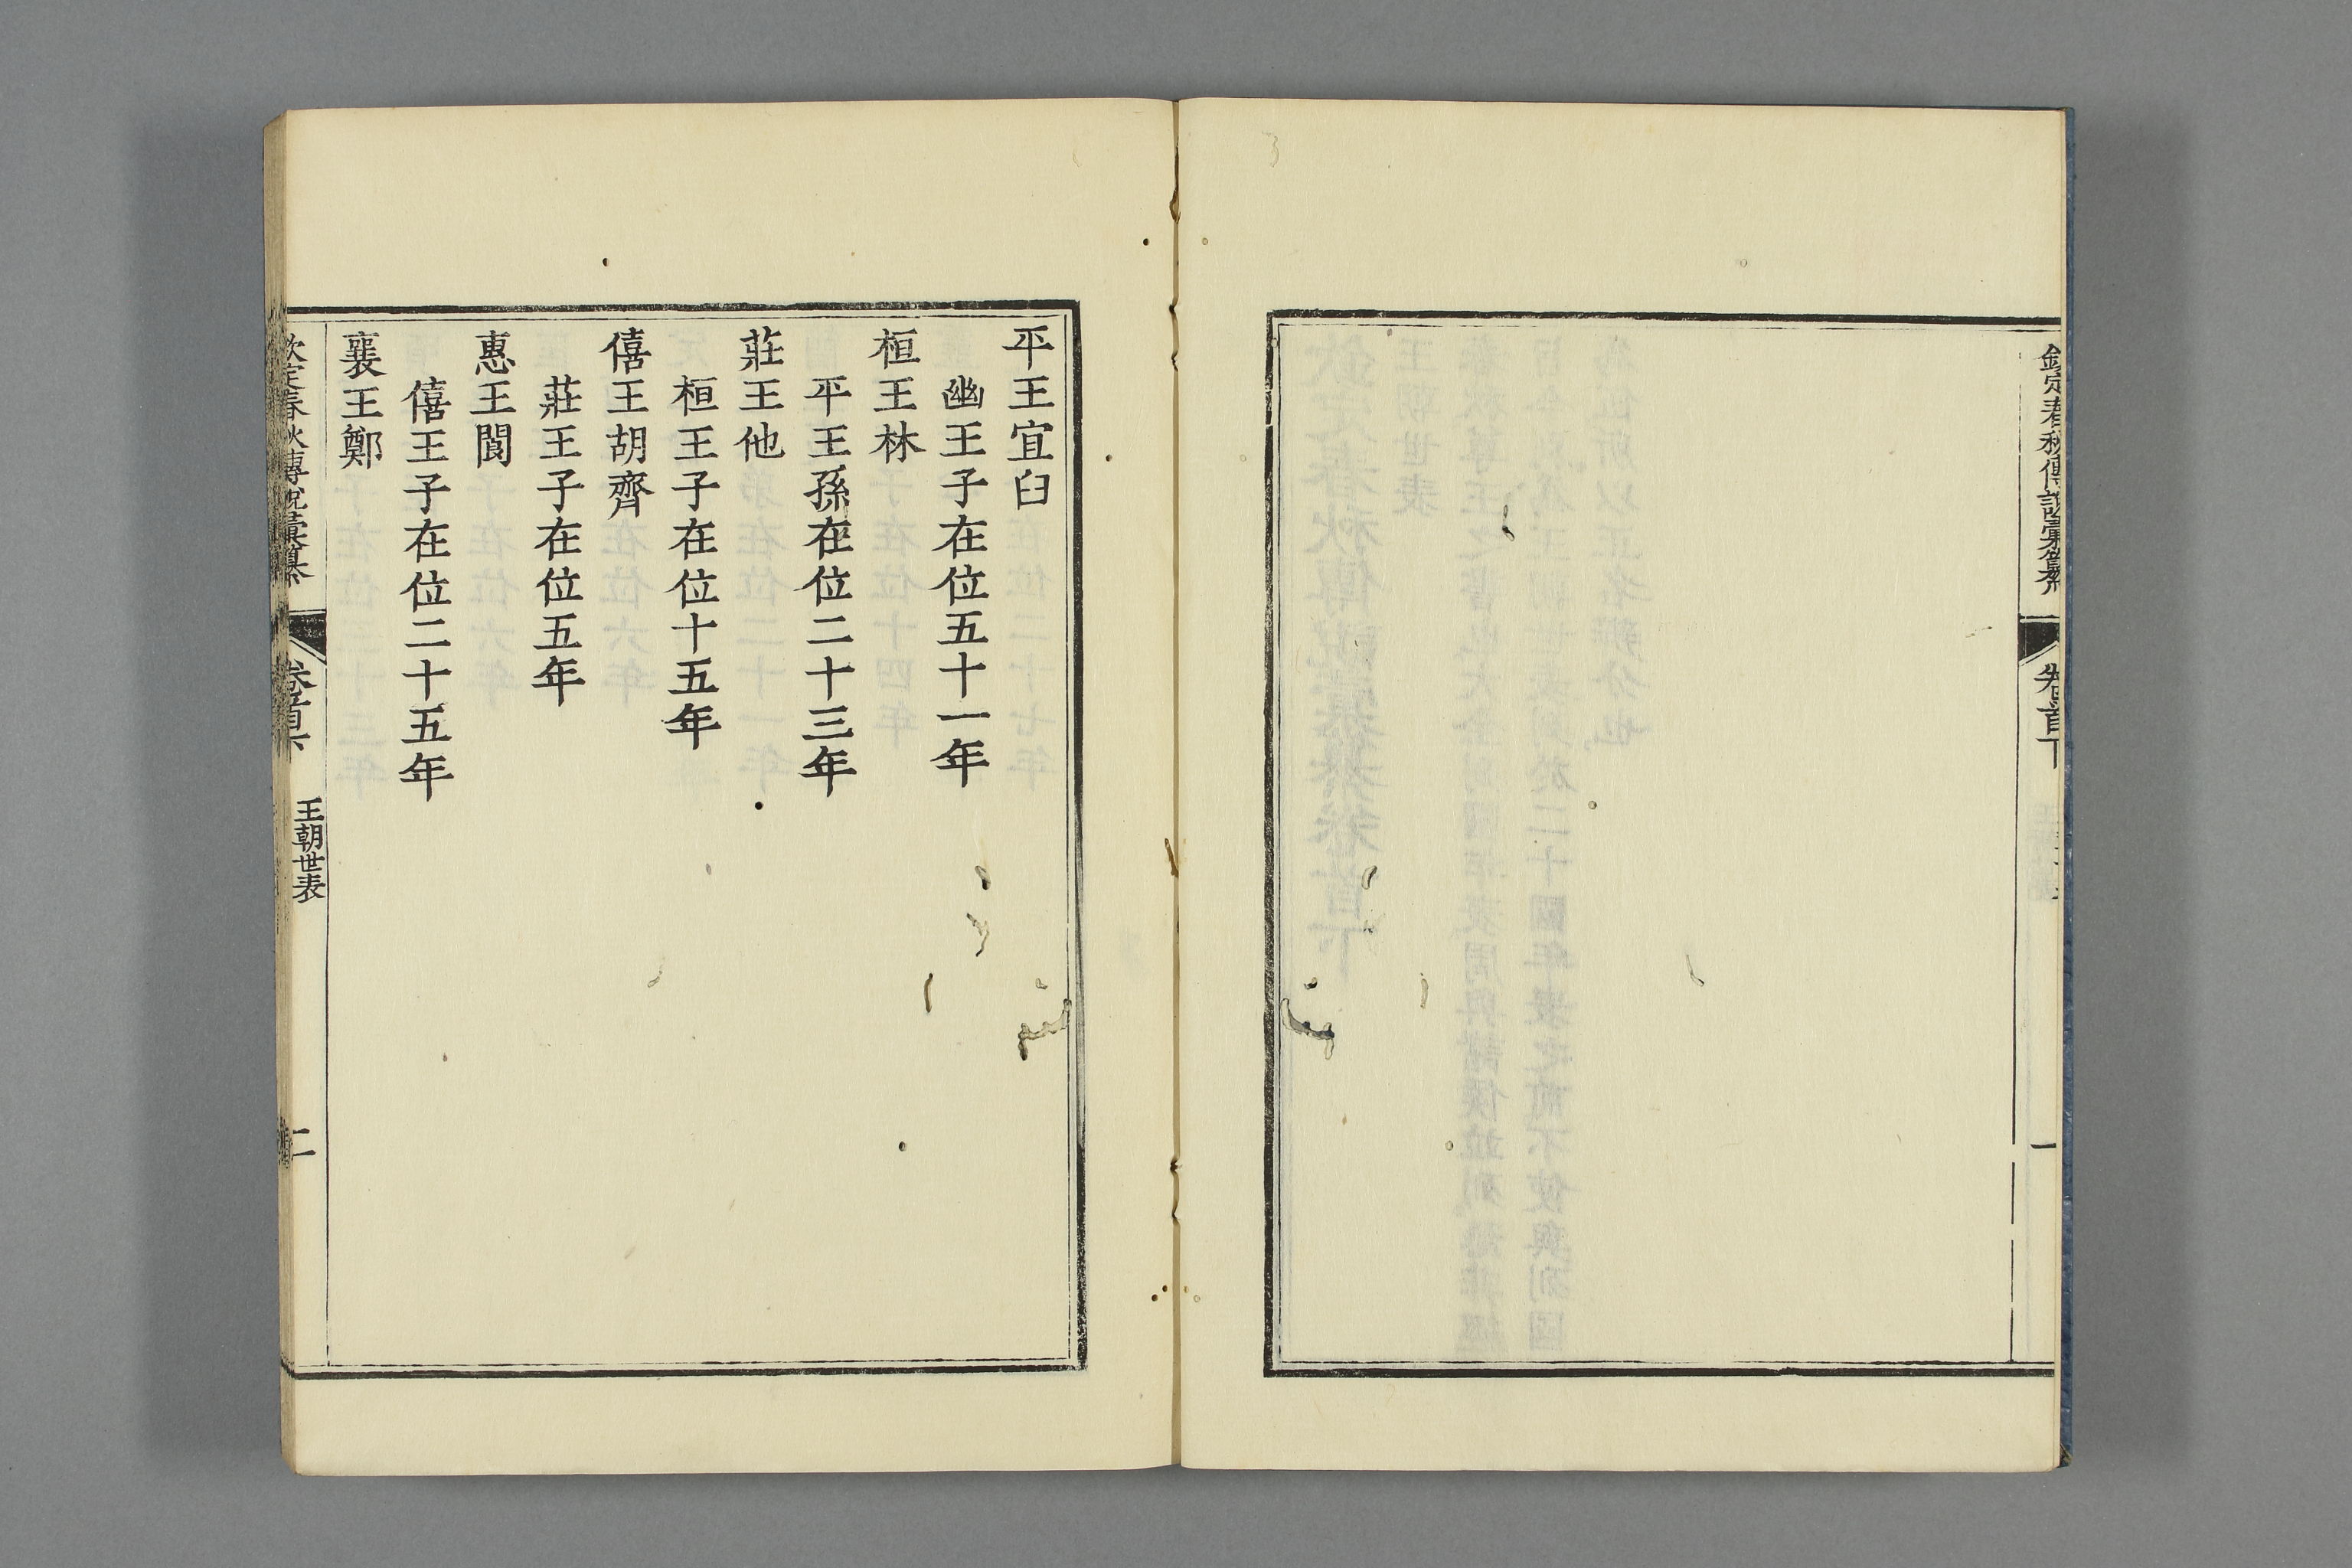 欽定春秋傳說彙纂 卷首下 一
平王宜臼
幽王子在位五十一年
桓王林
平王孫在位二十三年
莊王他
桓王子在位十五年
僖王胡齊
莊王子在位五年
惠王閬
僖王子在位二十五年
襄王鄭
欽定春秋傳說彙纂 卷首下 王朝世表 二